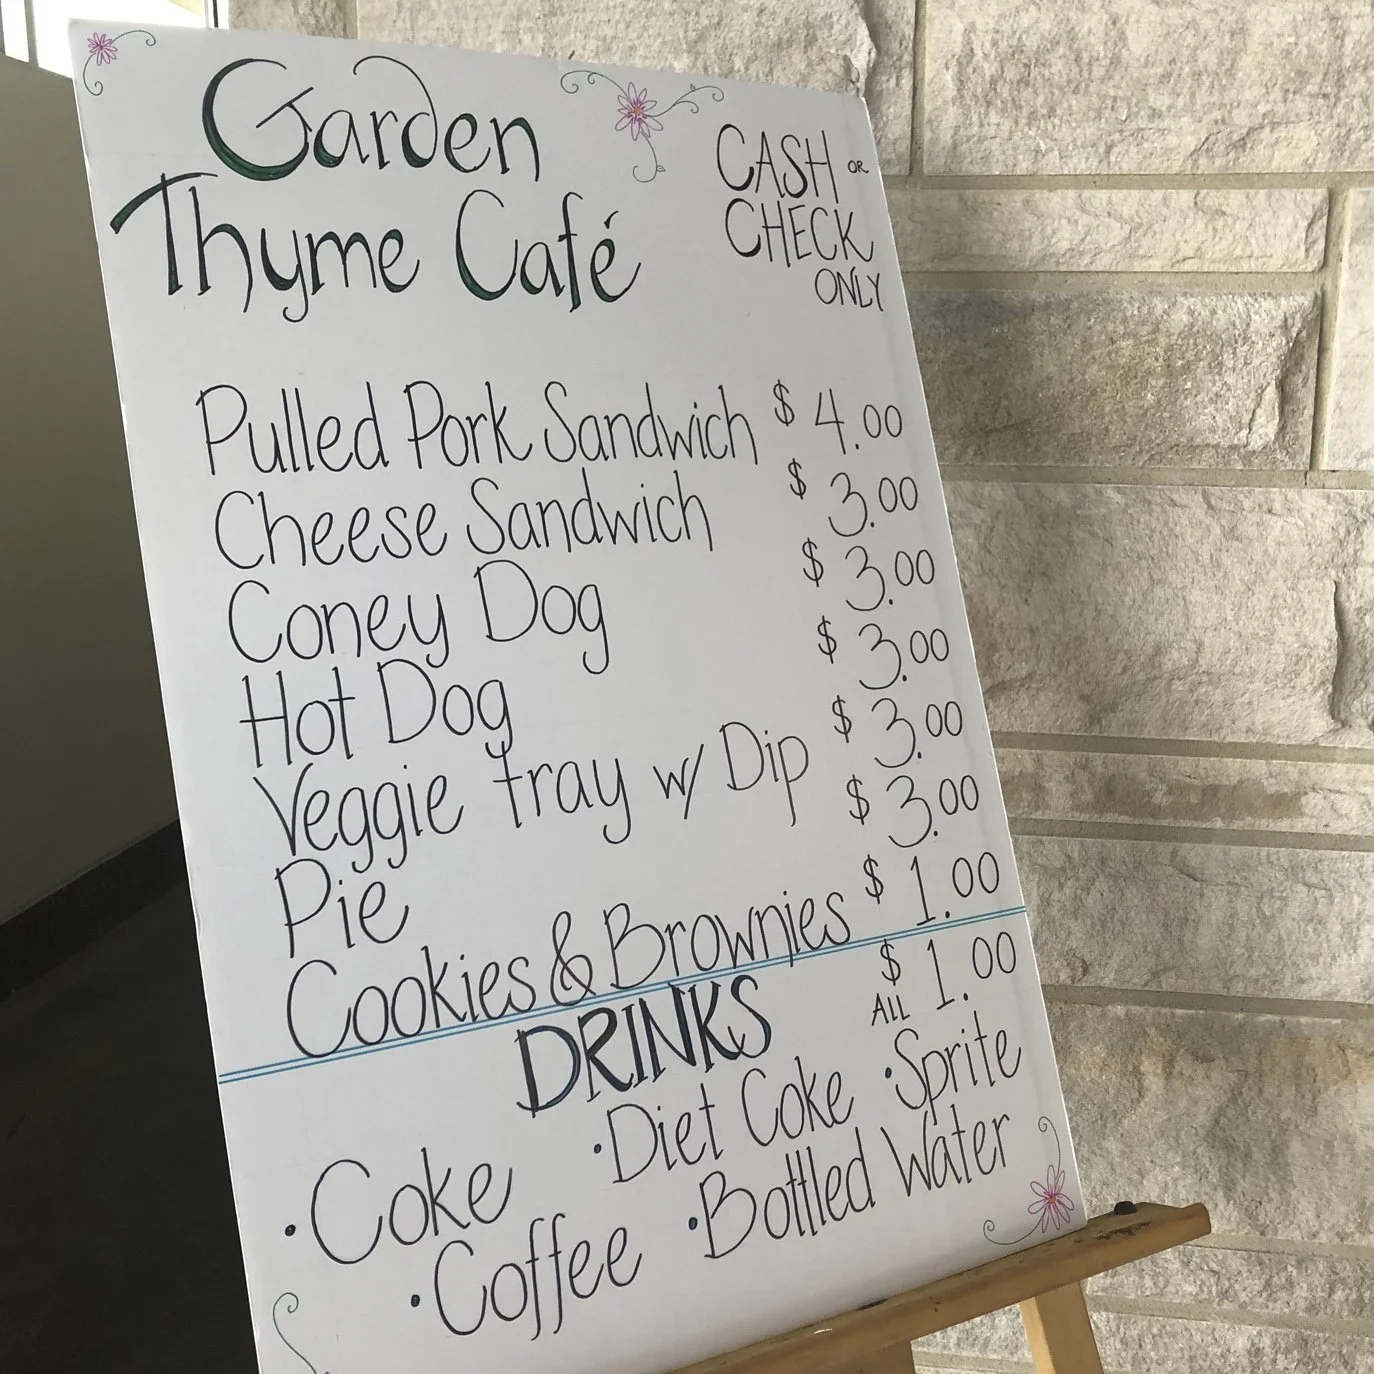 Garden
Thyme Café
CASH OR
CHECK
ONLY
Pulled Pork Sandwich $4.00
Cheese Sandwich $3.00
Coney Dog $3.00
Hot Dog $3.00
Veggie Tray w/ Dip $3.00
Pie $3.00
Cookies & Brownies $1.00
DRINKS ALL $1.00
•Coke •Diet Coke •Sprite
•Coffee •Bottled Water